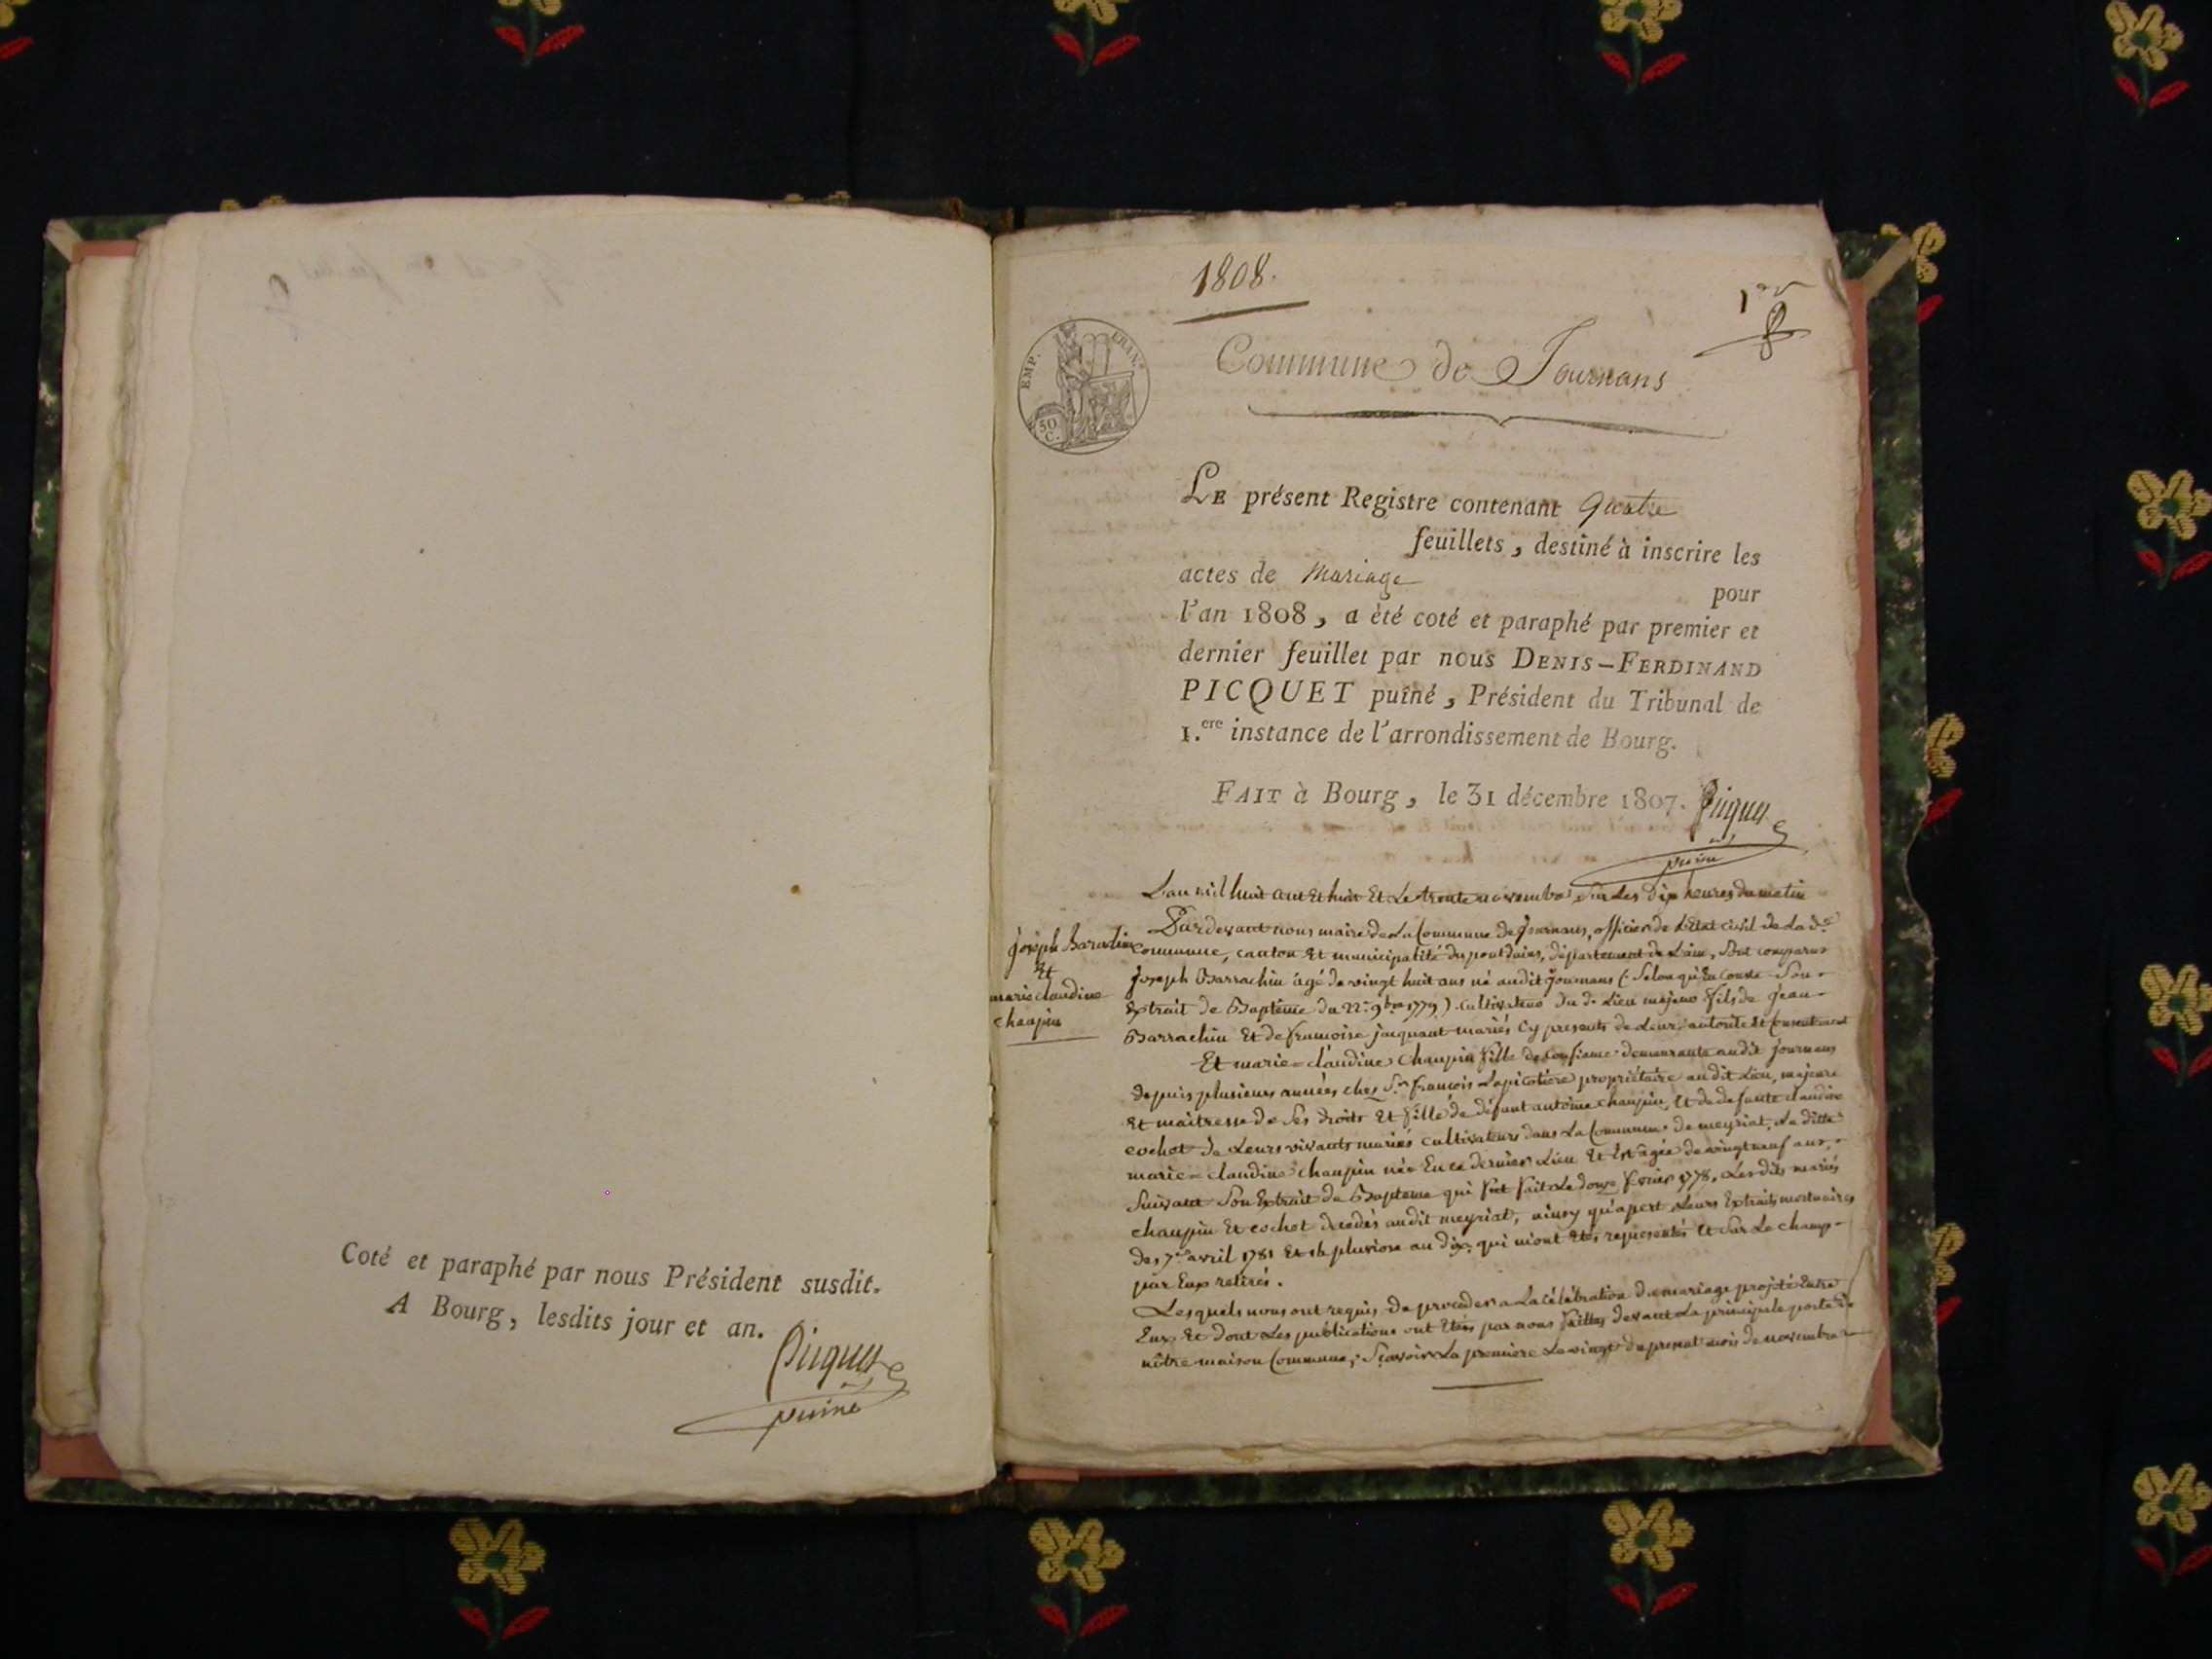 Coté et paraphé par nous Président susdit.
A Bourg, lesdits jour et an.
Picquet
puiné
1808.
1er
EMP. FRAN.
50
C.
Commune de Journans
LE présent Registre contenant quatre
feuillets, destiné à inscrire les
actes de Mariage
pour
l'an 1808, a été coté et paraphé par premier et
dernier feuillet par nous DENIS-FERDINAND
PICQUET puîné, Président du Tribunal de
1.ere instance de l'arrondissement de Bourg.
FAIT à Bourg, le 31 décembre 1807. Picquet
puiné
Joseph Barachin
Et
marie claudine
chaupin
L'an mil huit cent Et huit Et Le trente novembre sur Les Dix heures du matin
Pardevant nous maire de La Commune de Journans, officier de L'Etat civil de La de
Commune, canton Et municipalité du pont dains, département de L'ain, sont comparus
Joseph Barrachin âgé de vingt huit ans né audit Journans (Selon qu'En conste Son
Extrait de Baptême du 22e 9bre 1779) Cultivateur du d. Lieu majeur fils de Jean
Barrachin Et de francoise jacquant mariés Cy presents de Leur autorité Et Consentement
Et marie-claudine Chaupin fille demeurante audit Journans
depuis plusieurs années chez Sr françois Lapicotiere propriétaire audit Lieu, majeure
Et maitresse de Ses droits Et fille de défunt antoine chaupin, Et de defunte claudine
cochet de Leurs vivants mariés cultivateurs dans La Commune de meyriat, La ditte
marie-claudine chaupin née En ce dernier Lieu Et Est agée de vingt neuf ans,
Suivant Son Extrait de Bapteme qui fut fait Le douze fevrier 1778, Lesdits mariés
chaupin Et cochet decedés audit meyriat, ainsy qu'apert Leurs Extraits mortuaires
des 7e avril 1781 Et 16 pluviose an dix, qui m'ont Etés representés Et Sur Le champ
par Eux retirés.
Lesquels nous ont requis de proceder a La célébration du mariage projeté Entre
Eux Et dont Les publications ont Etés par nous faittes devant La principale porte de
nôtre maison Commune, Sçavoir La premiere Le vingt du present mois de novembre